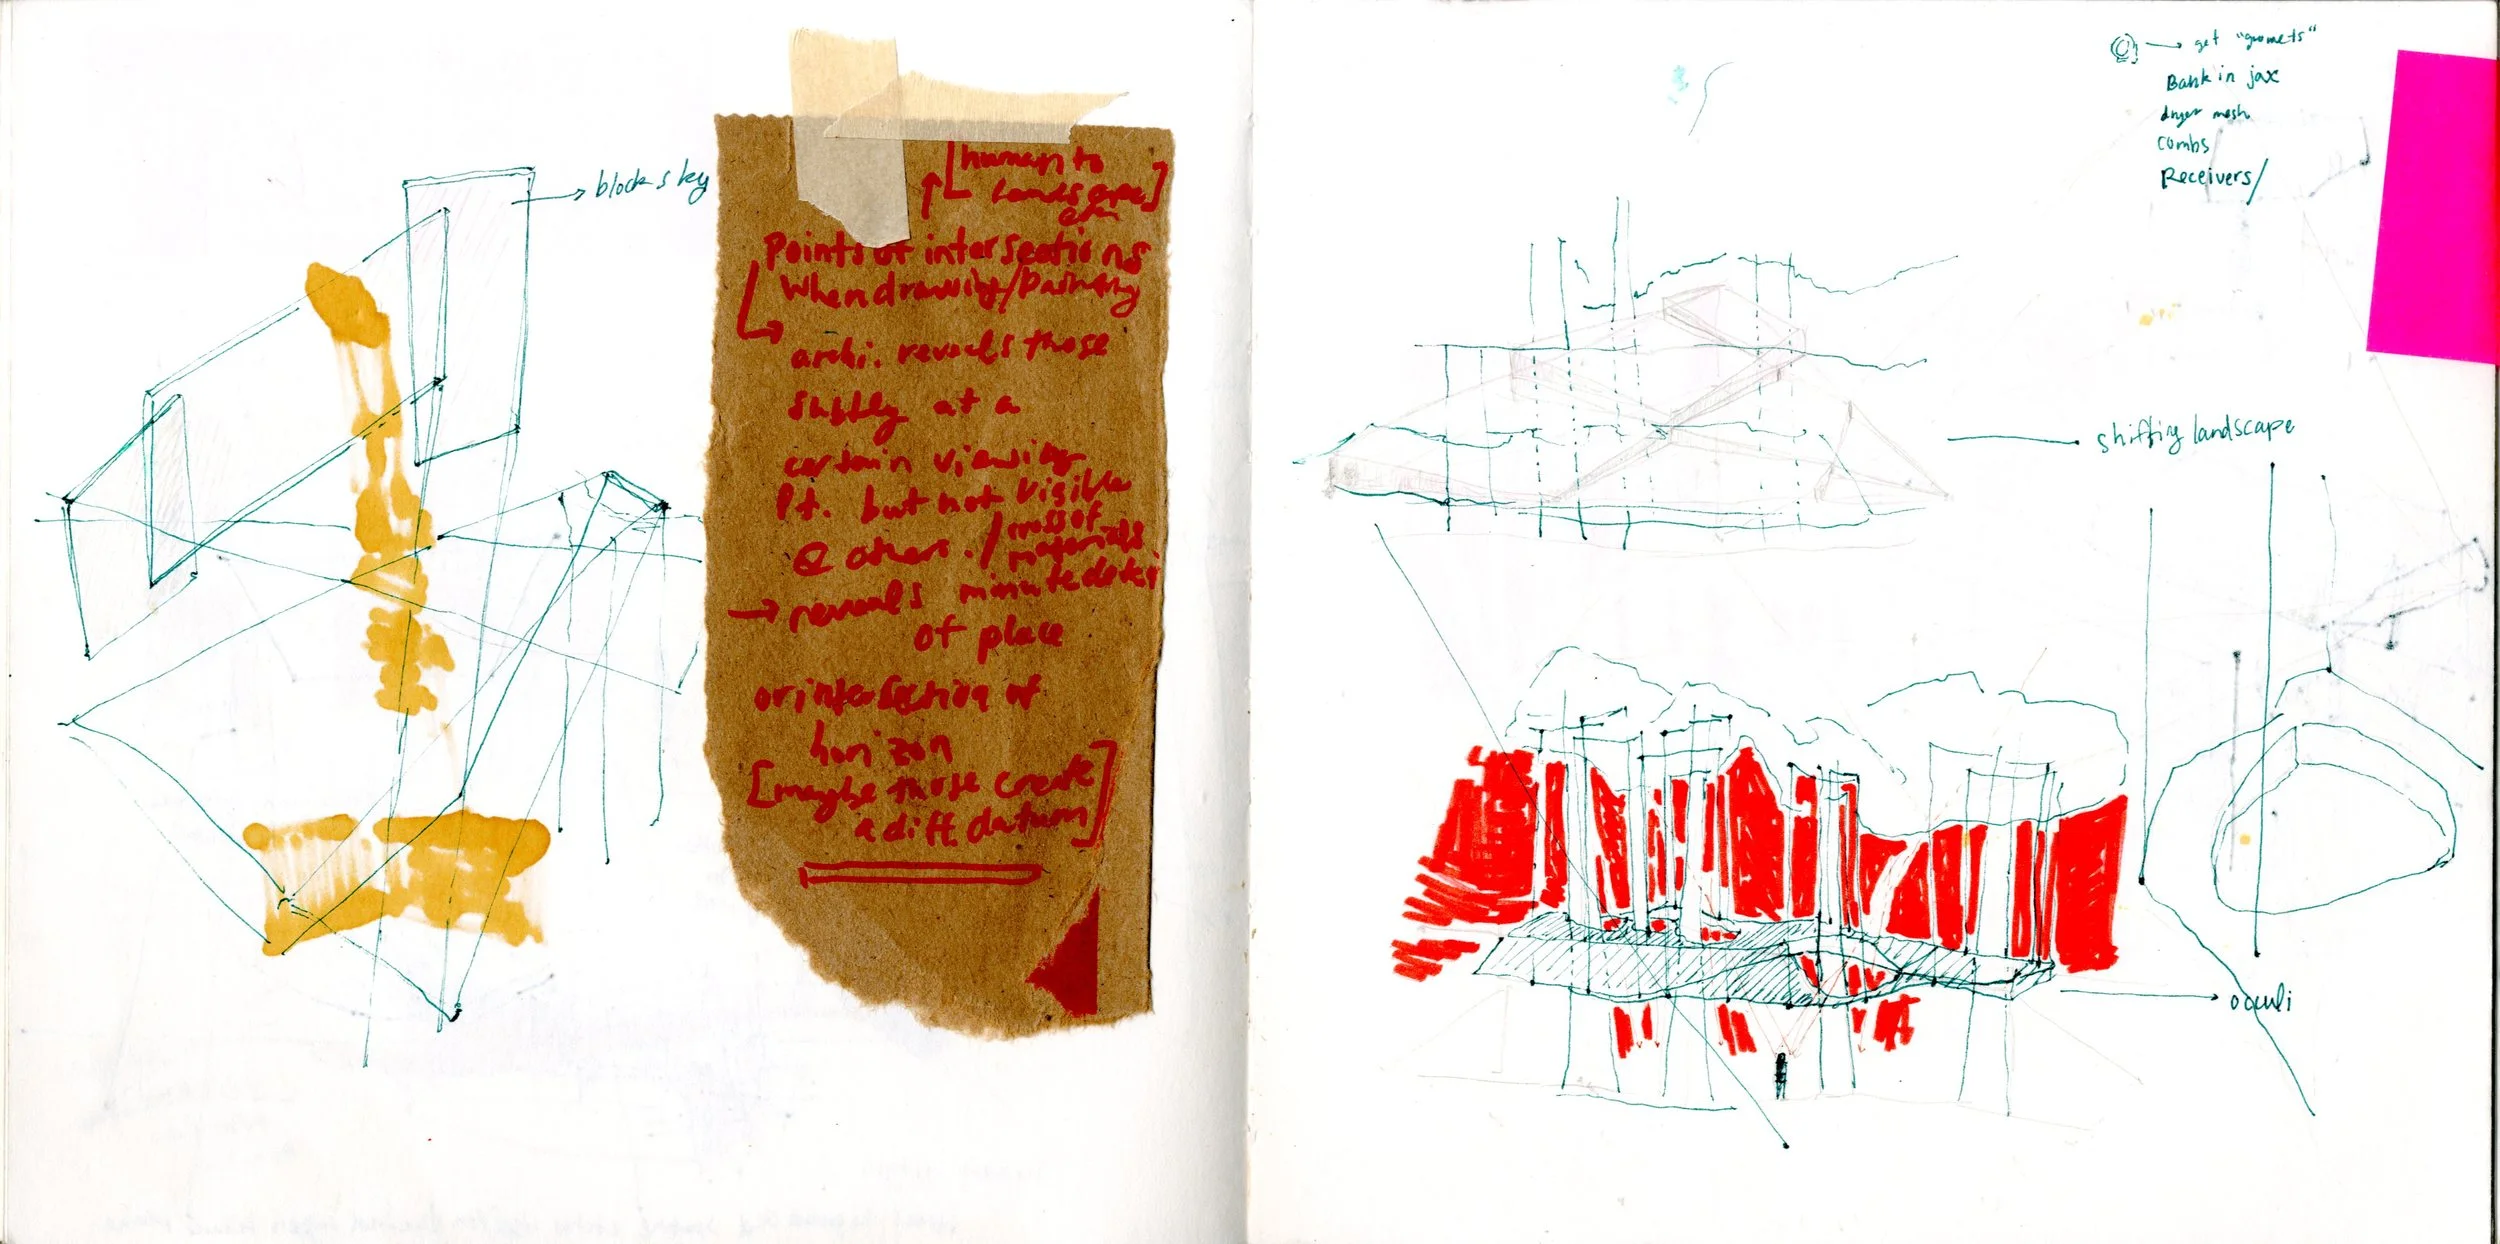 block sky
[human to
landscape]
Points of intersections
when drawing/
archi. reveals those
subtly at a
certain viewing
Pt. but not visible
@ other. / mass of
materials
→ reveals minute details
of place
or intersection of
horizon
[maybe those create
a diff datum]
→ get "gromets"
Bank in jax
dryer mesh
combs
Receivers/
shifting landscape
oculi